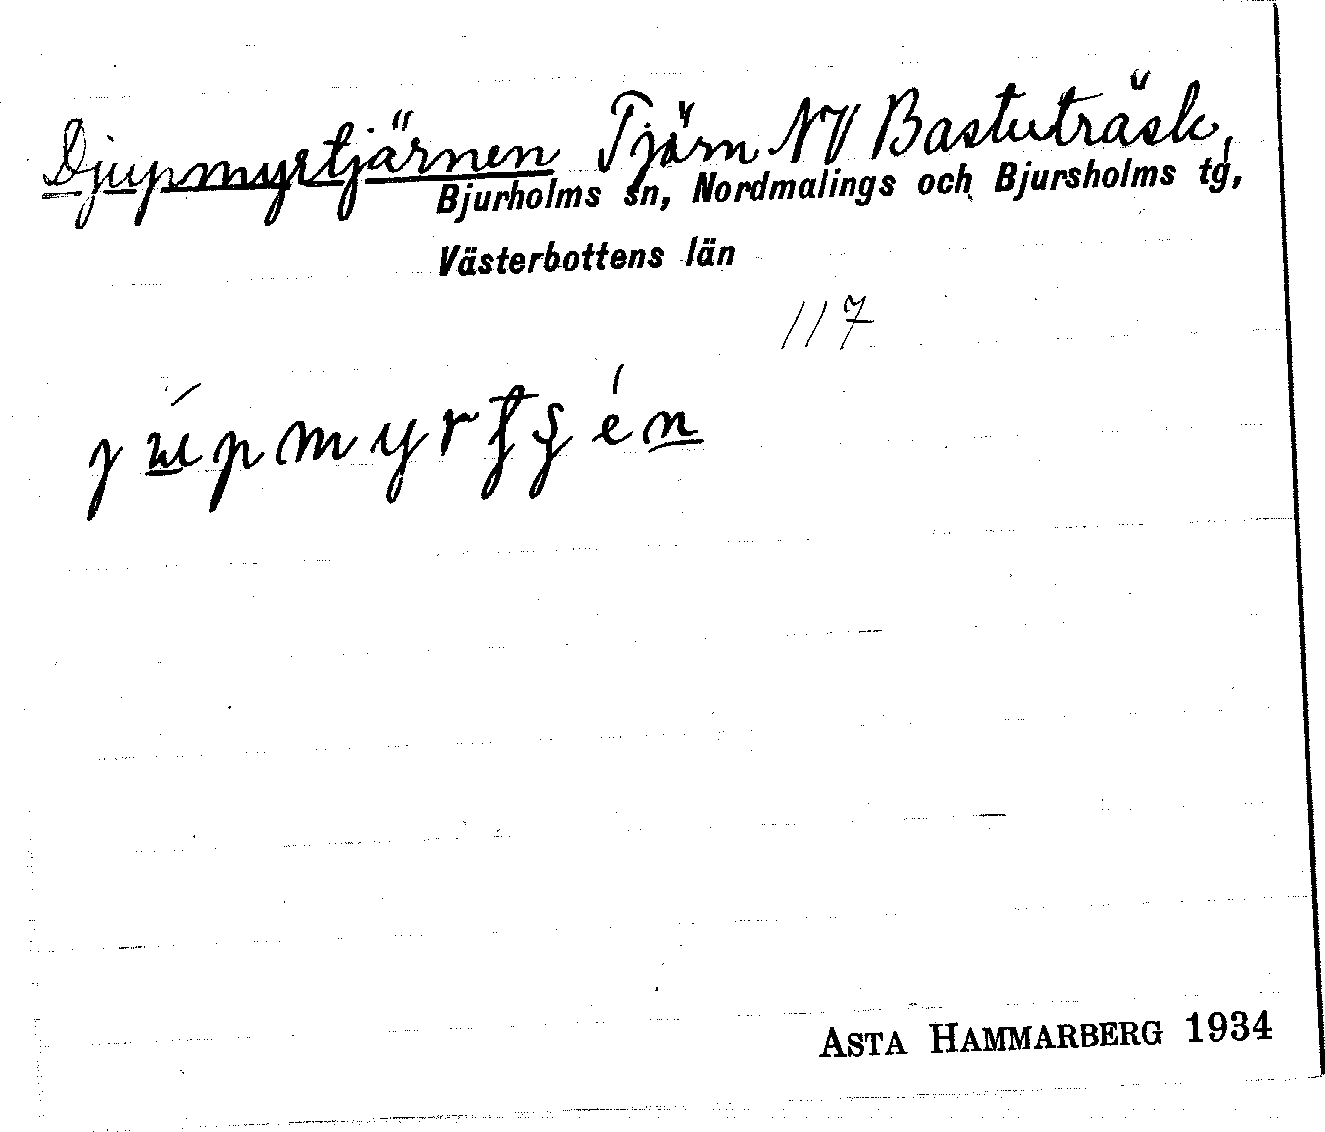 Djupmyrtjärnen Tjärn NV Bastuträsk,
Bjurholms sn, Nordmalings och Bjursholms tg,
Västerbottens län
117
ASTA HAMMARBERG 1934